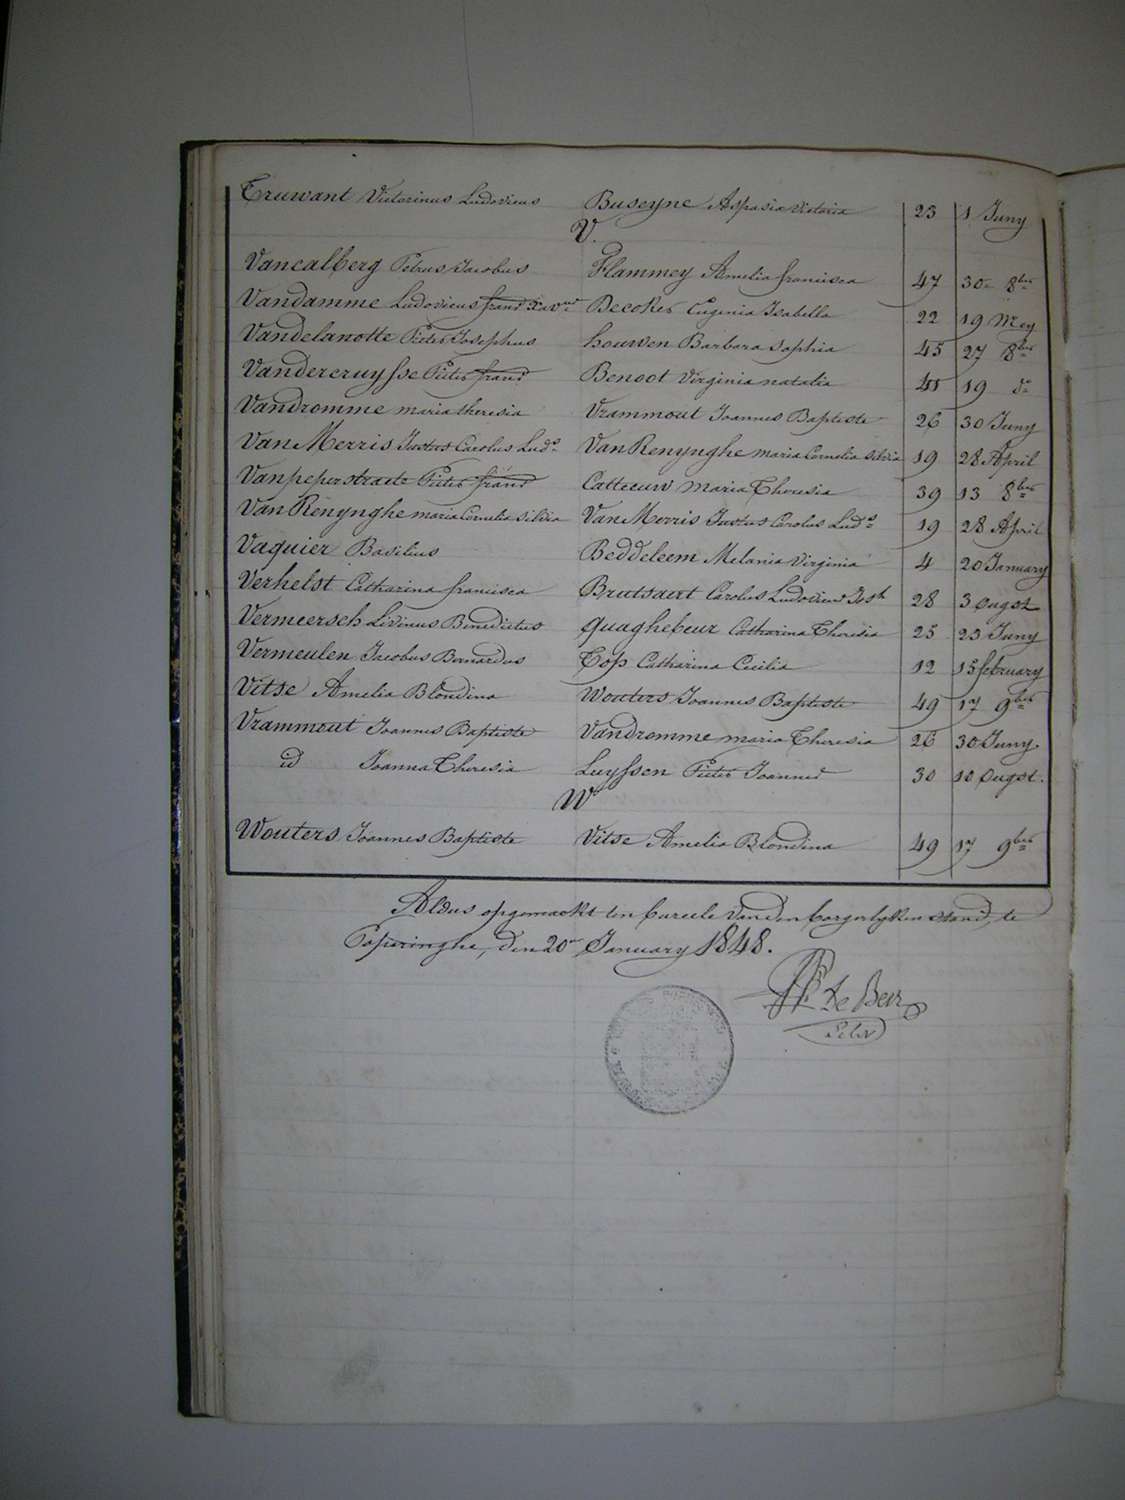 Truwant Victorinus Ludovicus Buseyne Aspasia Victoria 23 1 Juny
V.
Vancalberg Petrus Jacobus Flammey Amelia francisca 47 30 8ber
Vandamme Ludovicus frans Xavier Decoker Eugenia Isabella 22 19 Mey
Vandelanotte Pieter Josephus houwen Barbara Sophia 45 27 8ber
Vandercruysse Pieter frans Benoot Virginia natalia 41 19 do
Vandromme maria theresia Vrammout Joannes Baptiste 26 30 Juny
Van Merris Justus Carolus Ludo Van Renynghe maria Cornelia Silvia 19 28 April
Vanpeperstraete Pieter frans Catteeuw maria Theresia 39 13 8ber
Van Renynghe maria Cornelia Silvia Van Merris Justus Carolus Ludo 19 28 April
Vaquier Basilius Beddeleem Melania Virginia 4 20 January
Verhelst Catharina francisca Brutsaert Carolus Ludovicus Josh 28 3 Ougst
Vermeersch Livinus Benedictus Quaghebeur Catharina Theresia 25 23 Juny
Vermeulen Jacobus Bernardus Top Catharina Cecilia 12 15 february
Vitse Amelia Blondina Wouters Joannes Baptiste 49 17 9ber
Vrammout Joannes Baptiste Vandromme maria Theresia 26 30 Juny
id Joanna Theresia Luyssen Pieter Joannes 30 10 Ougst.
W
Wouters Joannes Baptiste Vitse Amelia Blondina 49 17 9ber
Aldus opgemaekt ten bureele van den borgerlyken stand, te
Poperinghe, den 20en January 1848.
de Beir